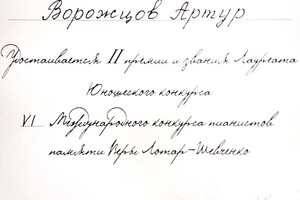 Ворожцов Артур
Удостаивается II премии и звания Лауреата
Юношеского конкурса
VI Международного конкурса пианистов
памяти Веры Лотар-Шевченко